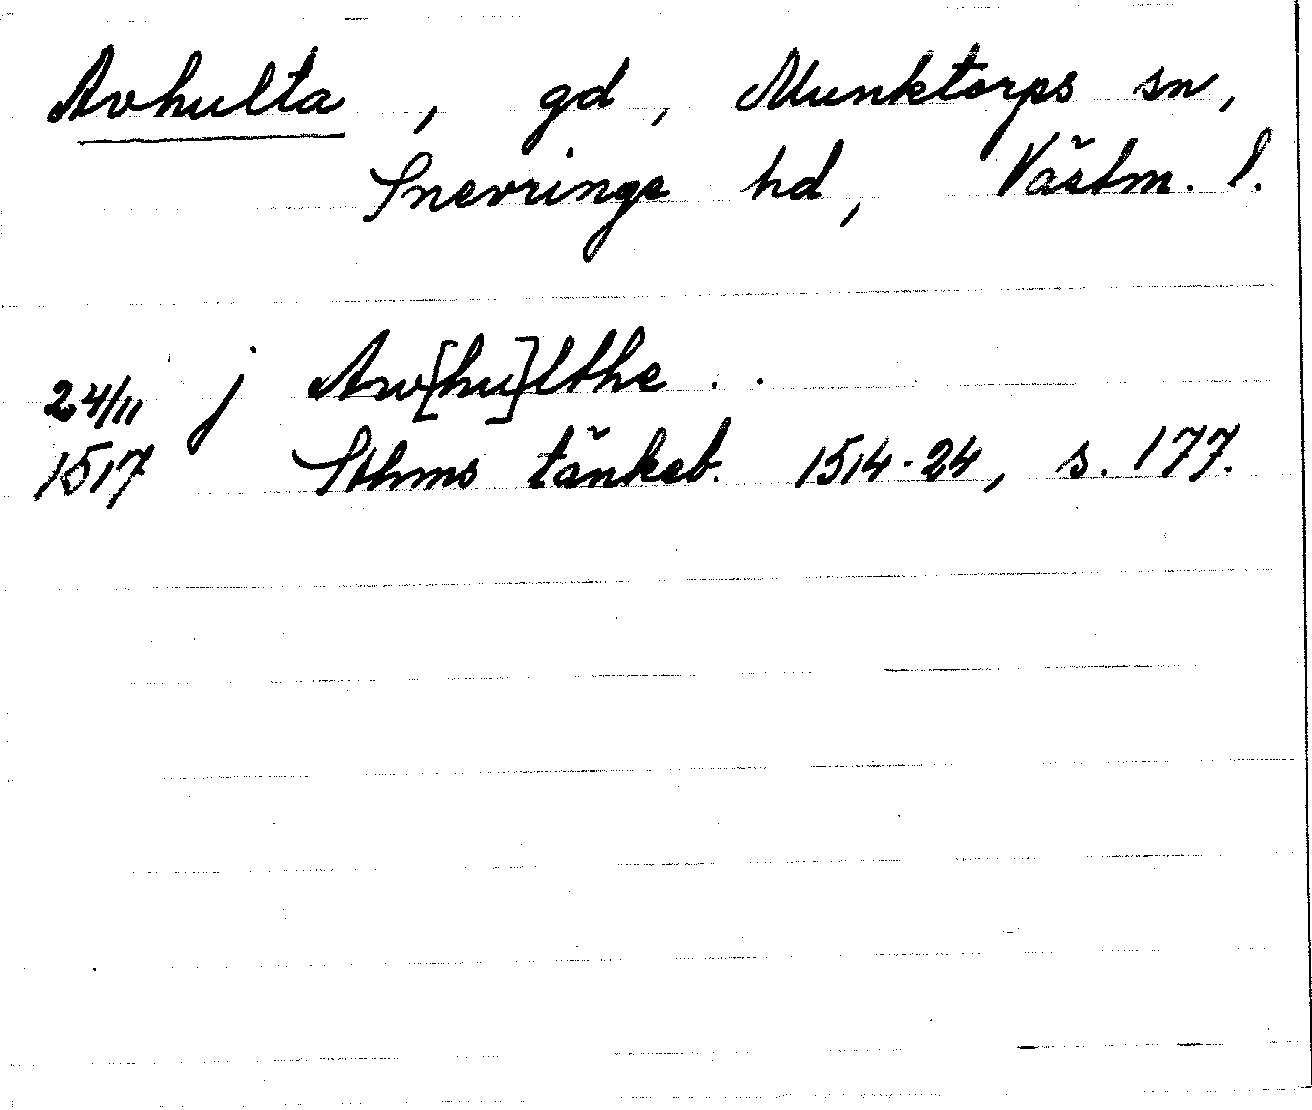 Avhulta, gd, Munktorps sn,
Snevringe hd, Västm. l.
24/11 j Aw[hu]lthe . .
1517 Sthms tänkeb. 1514-24, s. 177.